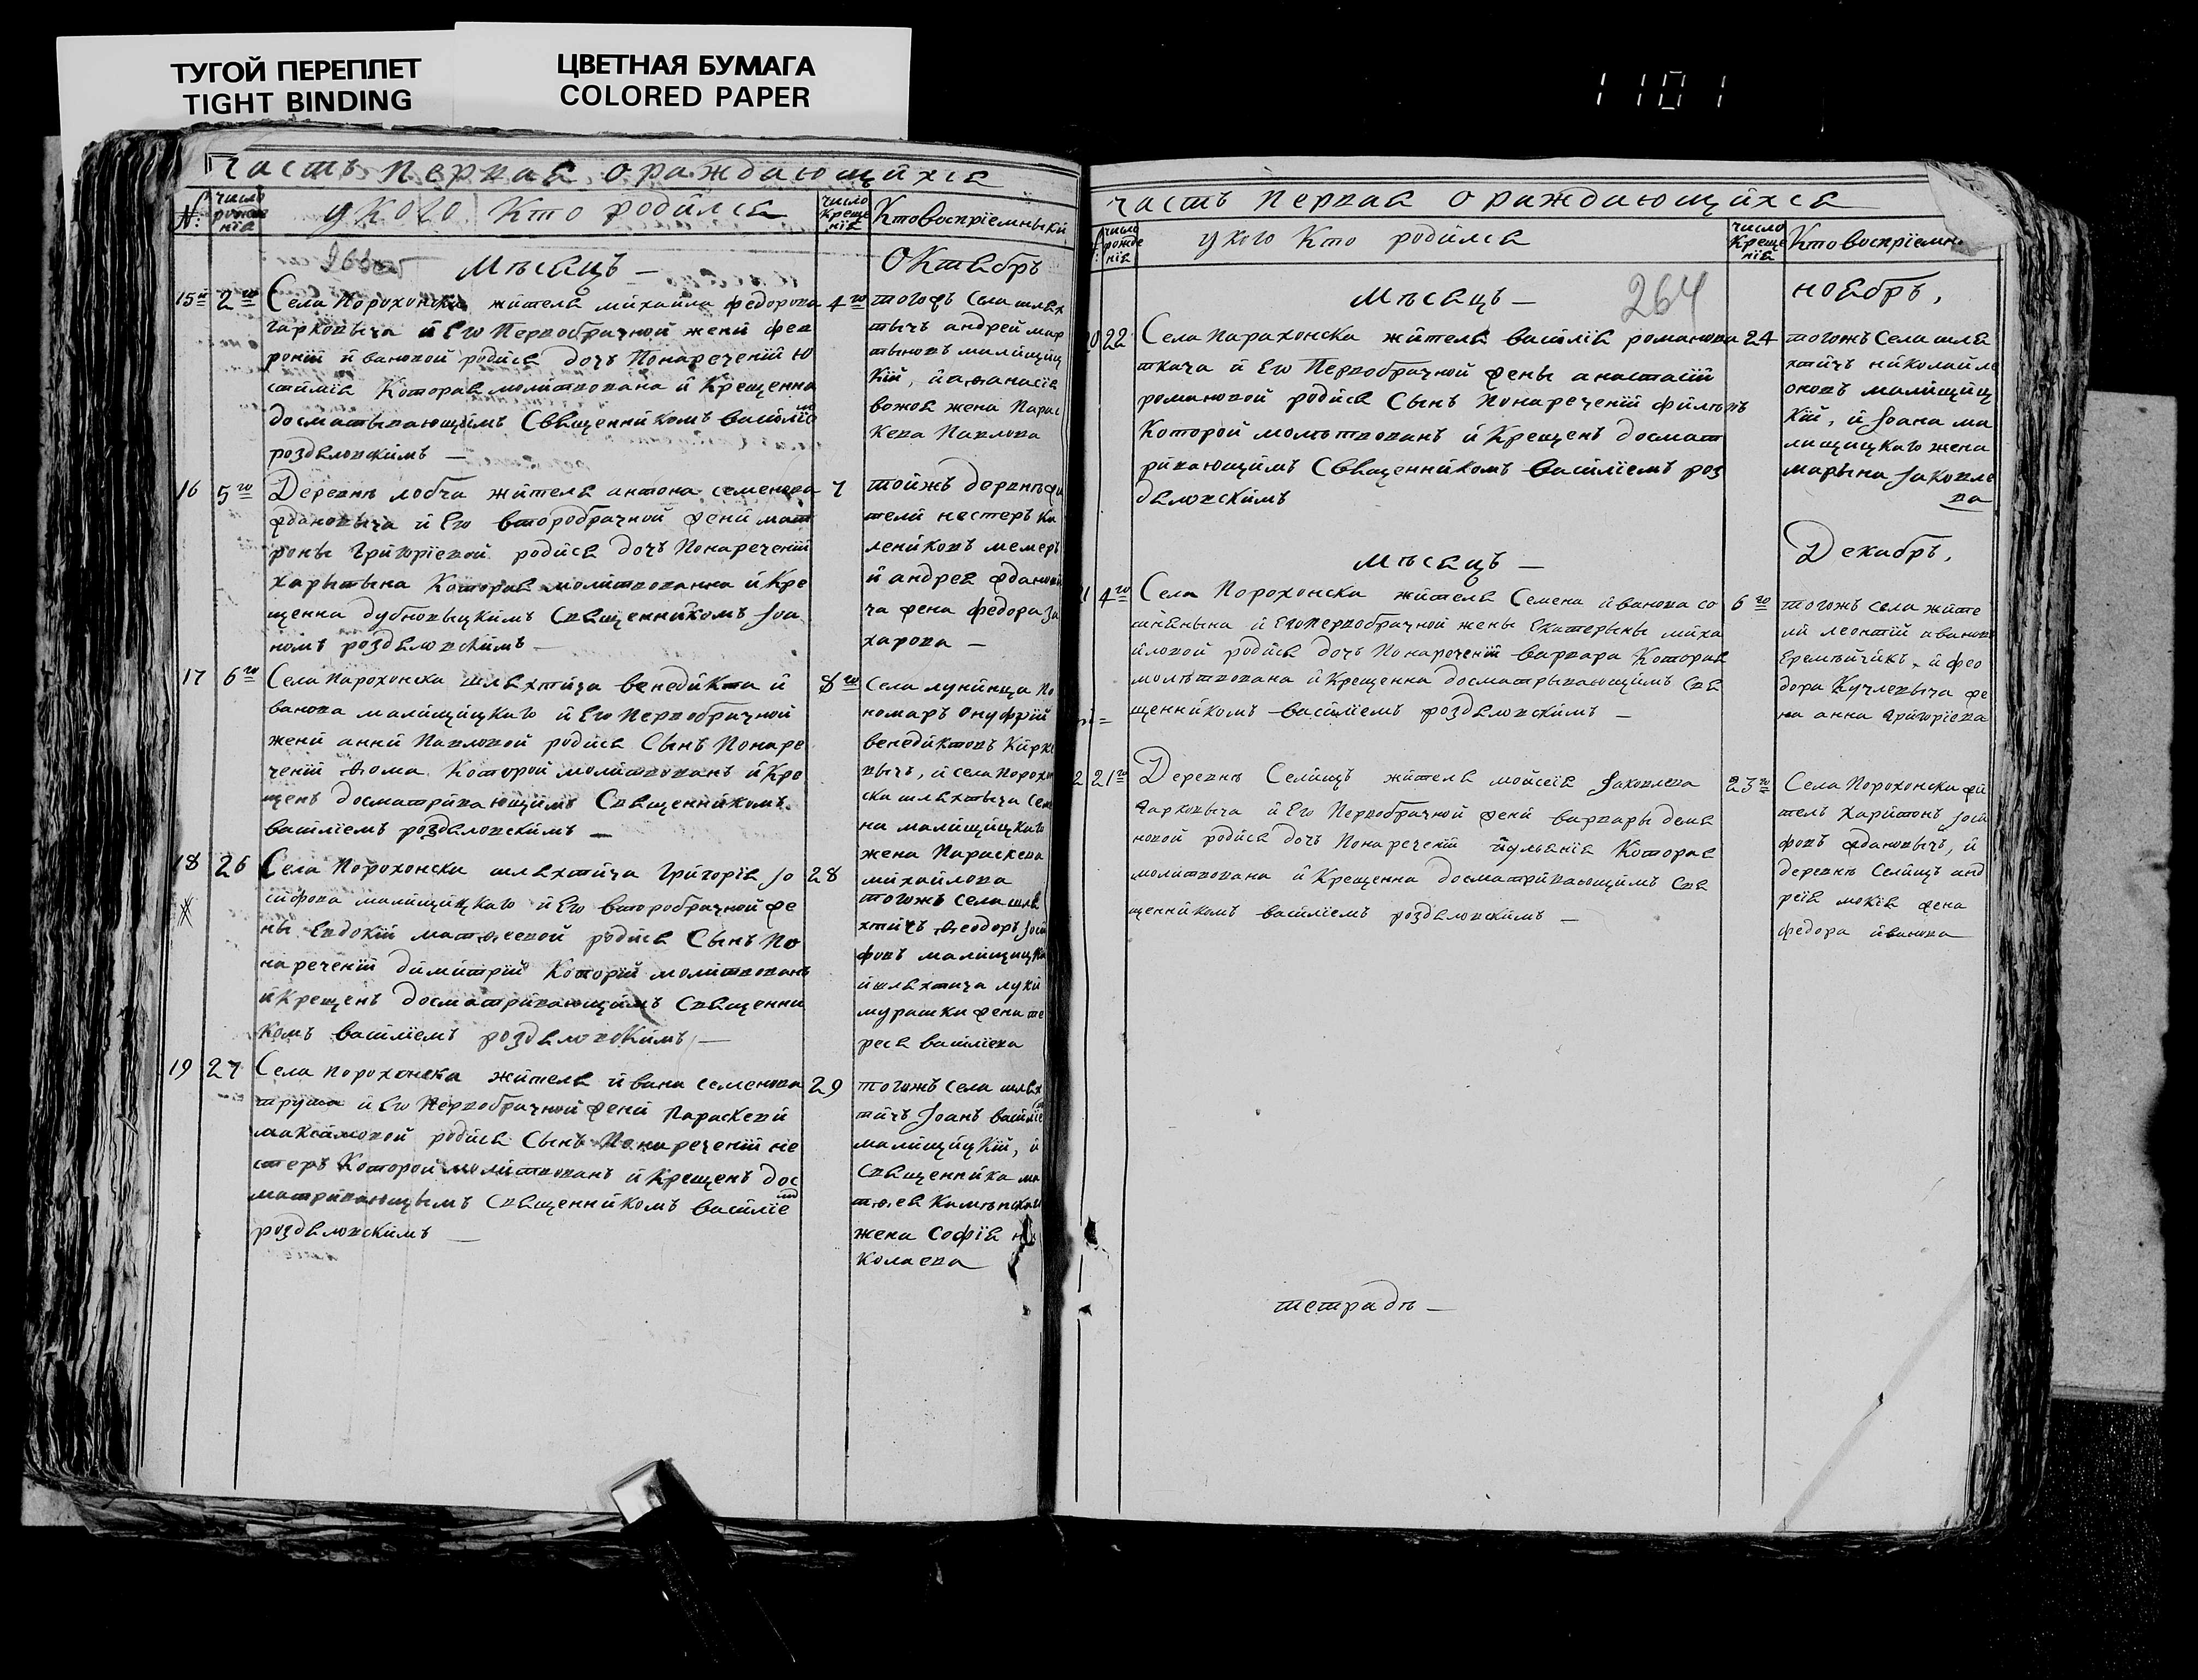 ТУГОЙ ПЕРЕПЛЕТ
TIGHT BINDING
ЦВЕТНАЯ БУМАГА
COLORED PAPER
1101
часть первая о раждающихся
№
число рождения
у кого кто родился
число крещения
Кто восприемники
Мѣсяцъ —
Октябрь
15 2го
Села Порохонска жителя михаила федорова
гарковыча и Его Первобрачной жени фев
ронiи ивановой родися дочъ Понареченiи Ю
стинiя Которая молитвована и Крещенна
досматывающимъ Священникомъ василiем
роздяловскимъ —
4го
тогожъ Села шлях
тычъ андрей мар
тыновъ малищиц
кiй, и афанасiя
вожова жена Парас
кева Павлова
16 5го
Деревнѣ лобча жителя антона семенова
ждановыча и Его второбрачной жени мат
роны Григорiевой родися дочъ Понареченiи
харытына Которая молитвованна и Кре
щенна дубновыцкимъ Священникомъ Iоа
номъ роздяловскимъ —
7
тойжъ деревнѣ жи
тели нестеръ Ка
лениковъ мемеръ
и андрея жданови
ча жена федора за
харова —
17 6го
Села Порохонска шляхтича венедикта и
ванова малищицкаго и Его Первобрачной
жени анни Павловой родися Сынъ Понаре
ченiи Ѳома Которой молитвованъ и Кре
щенъ досматривающимъ Священникомъ
василiемъ роздяловскимъ —
8го
Села лунинца По
номаръ Онуфрiй
венедиктовъ Кирке
вычъ, и села Порохон
ска шляхтыча Семе
на малищицкаго
жена Параскева
михайлова
18 26
Села Порохонска шляхтича Григорiя Iо
сифова малищицкаго и Его второбрачной же
ны Евдокiи матѳеевой родися Сынъ По
нареченiи димитрiй Которiй молитвованъ
и Крещенъ досматривающимъ Священни
комъ василiемъ роздяловскимъ —
28
тогожъ села шля
хтичъ Ѳеодоръ Iоси
фовъ малищицкiй
и шляхтича луки
мурашки жена те
реся василiева
19 27
Села Порохонска жителя ивана семенова
труша и Его Первобрачной жени Параскеви
максимовой родися Сынъ Понареченiи не
стеръ Которой молитвованъ и Крещенъ дос
матривающымъ Священникомъ василiем
роздяловскимъ —
29
тогожъ села шлях
тичъ Iоанъ василiев
малищицкiй, и
Священника ма
тѳея
жена Софiя ни
колаева
часть первая о раждающихся
число рождения
у кого кто родился
число крещения
Кто восприемн
264
Мѣсяцъ —
ноябрь,
20 22
Села Парахонска жителя василiя романова
ткача и Его Первобрачной жены анастасiи
романовой родися Сынъ Понареченiи филипъ
Которой молитвованъ и Крещенъ досмат
ривающимъ Священникомъ василiемъ роз
дяловскимъ
24
тогожъ Села шля
хтичъ николай ле
оновъ малищиц
кiй, и Iоана ма
лищицкаго жена
марына Iаковле
ва
Мѣсяцъ —
Декабрь,
1 4го
Села Порохонска жителя Семена иванова со
и Его первобрачной жены Екатерыны миха
йловой родися дочъ Понареченiи варвара Которая
молитвована и Крещенна досматрывающимъ Свя
щенникомъ василiемъ роздяловскимъ —
6го
тогожъ села жите
ли леонтiй ивановъ
Еремѣйчикъ, и фео
дора Кучлевыча же
на анна Григорiева
2 21го
Деревнѣ Селищъ жителя мойсея Iаковлева
гарковыча и Его Первобрачной жени варвары демя
новой родися дочъ Понареченiи иульянiя Которая
молитвована и Крещенна досматривающимъ Свя
щенникомъ василiемъ роздяловскимъ —
23го
Села Порохонска жи
тель харитонъ Iоси
фовъ ждановычъ, и
деревнѣ Селищъ анд
рея мокiя жена
федора иванова
тетрадь —